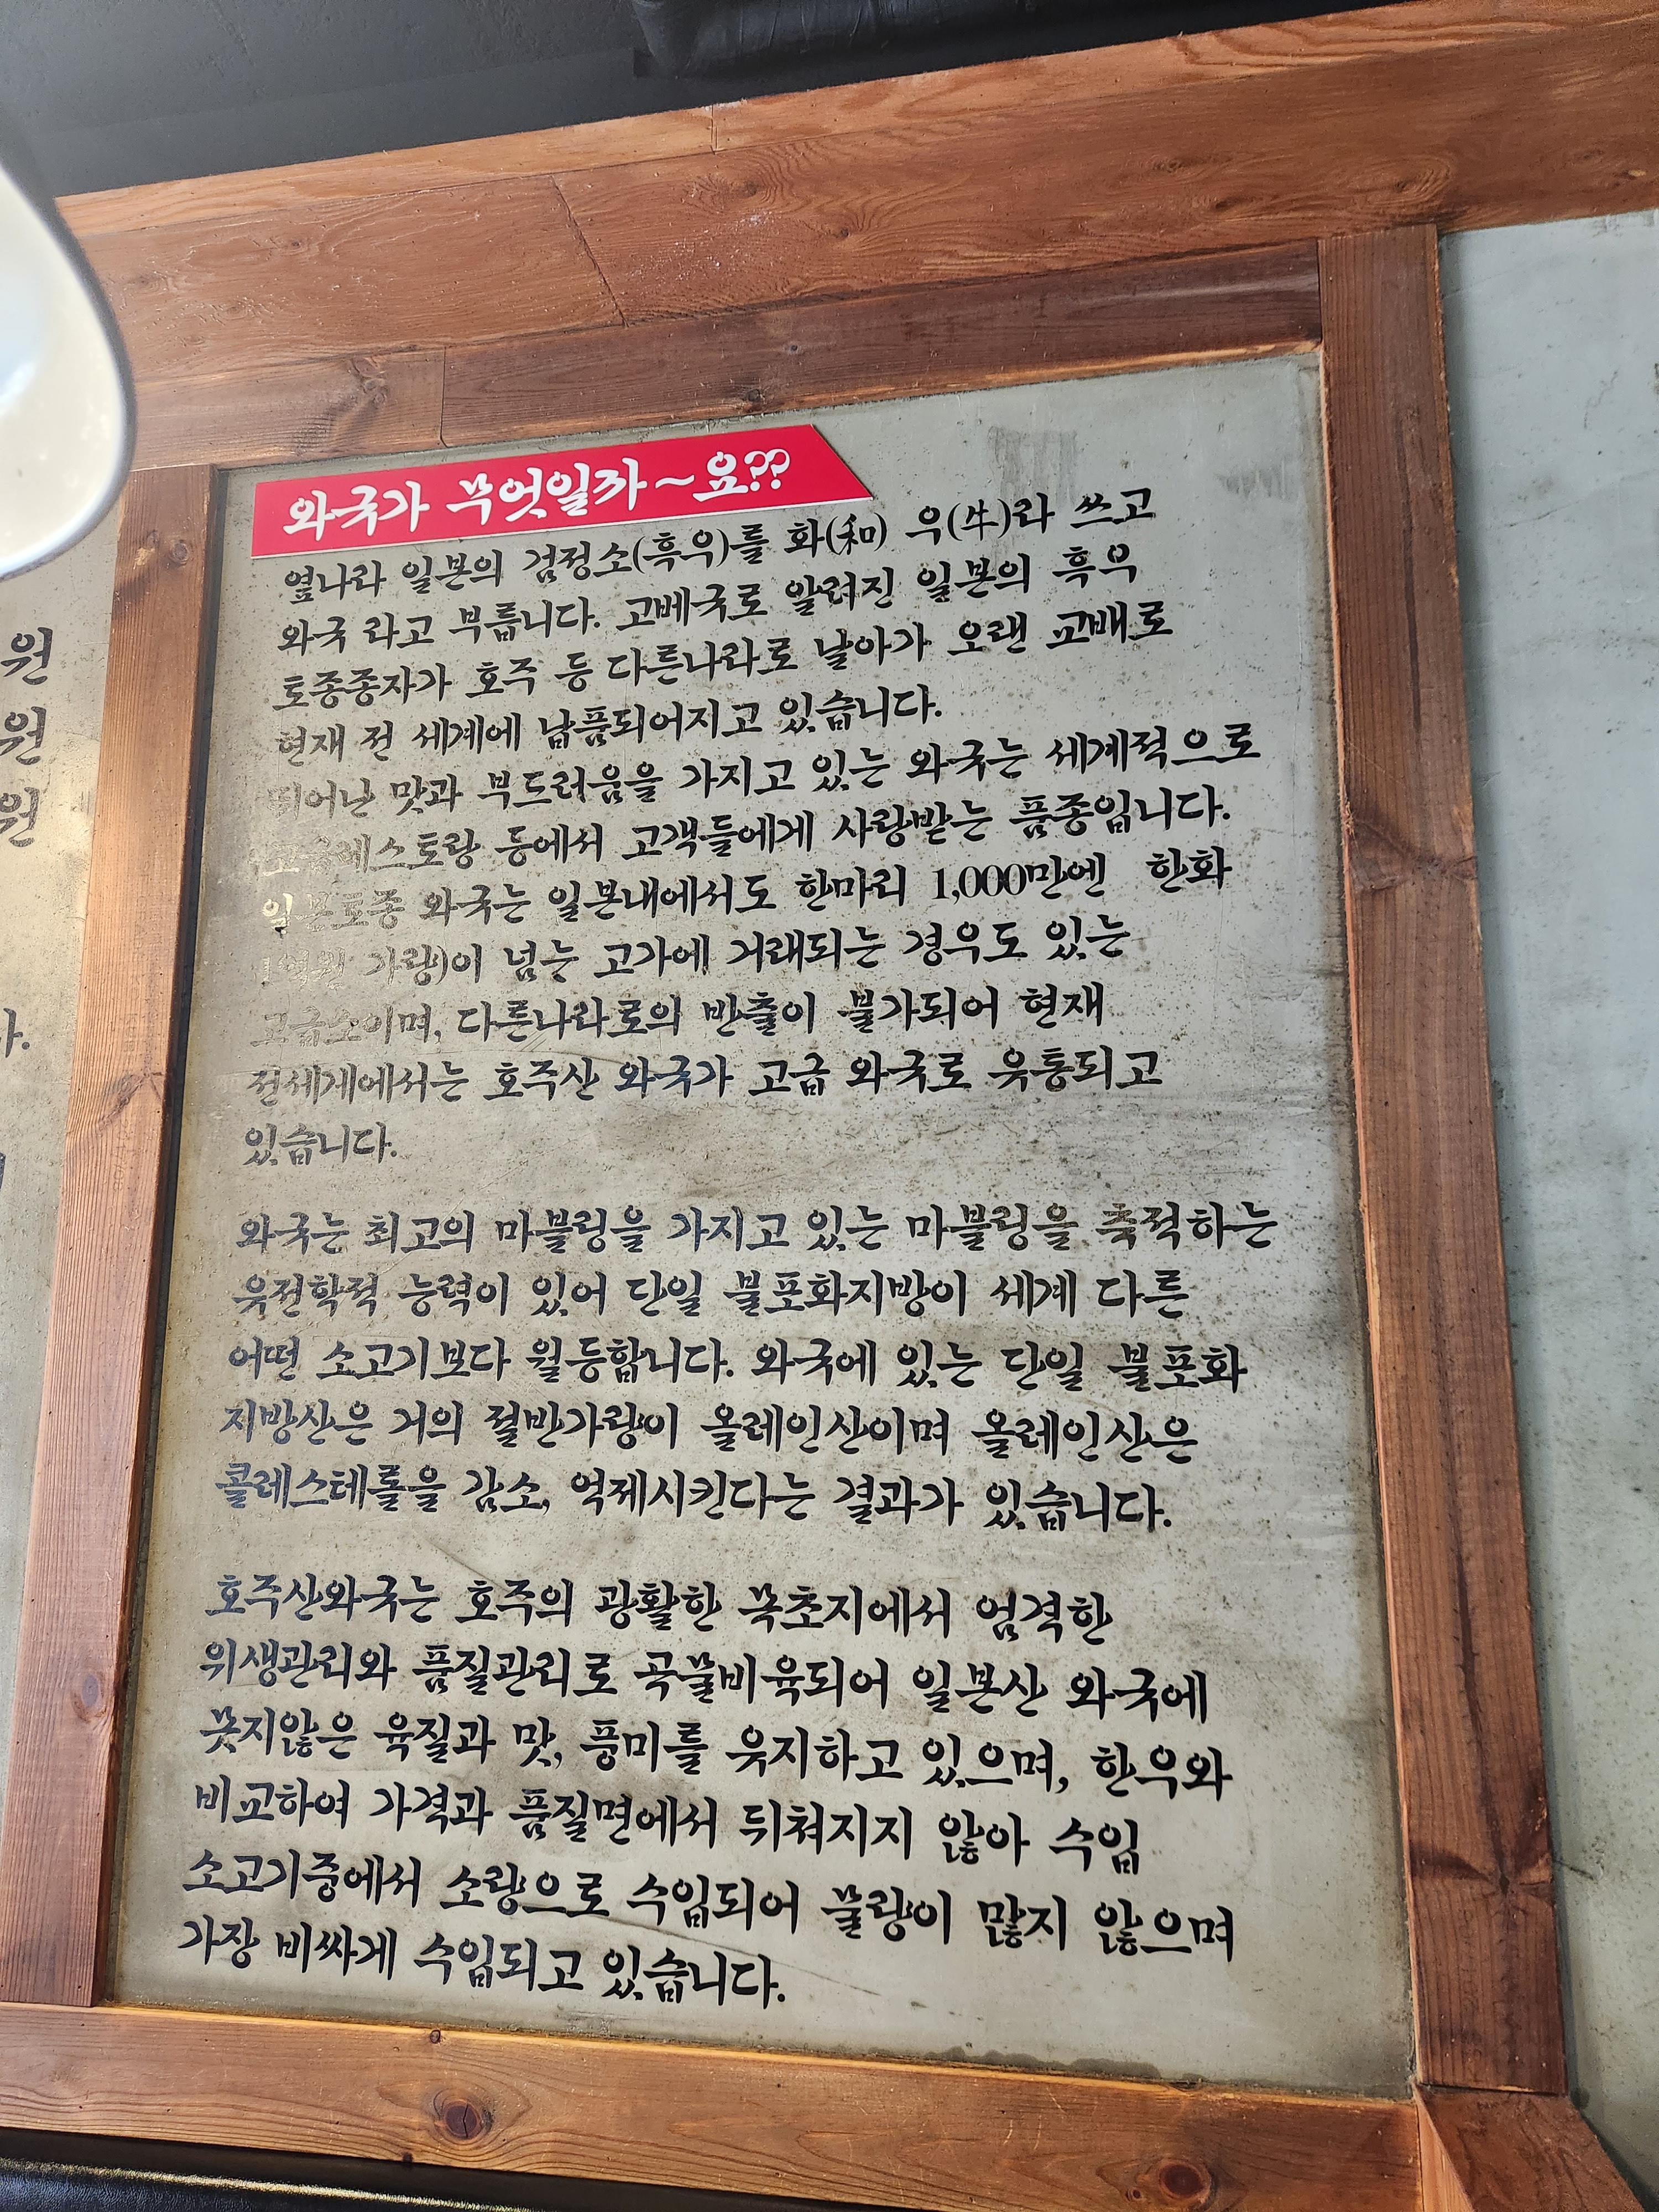 원
원
원
와규가 무엇일까~요??
옆나라 일본의 검정소(흑우)를 화(和) 우(牛)라 쓰고
와규 라고 부릅니다. 고베규로 알려진 일본의 흑우
토종종자가 호주 등 다른나라로 날아가 오랜 교배로
현재 전 세계에 납품되어지고 있습니다.
뛰어난 맛과 부드러움을 가지고 있는 와규는 세계적으로
고급레스토랑 등에서 고객들에게 사랑받는 품종입니다.
일본토종 와규는 일본내에서도 한마리 1,000만엔 한화
1억원 가량)이 넘는 고가에 거래되는 경우도 있는
고급소이며, 다른나라로의 반출이 불가되어 현재
전세계에서는 호주산 와규가 고급 와규로 유통되고
있습니다.
와규는 최고의 마블링을 가지고 있는 마블링을 축적하는
유전학적 능력이 있어 단일 불포화지방이 세계 다른
어떤 소고기보다 월등합니다. 와규에 있는 단일 불포화
지방산은 거의 절반가량이 올레인산이며 올레인산은
콜레스테롤을 감소, 억제시킨다는 결과가 있습니다.
호주산와규는 호주의 광활한 목초지에서 엄격한
위생관리와 품질관리로 곡물비육되어 일본산 와규에
못지않은 육질과 맛, 풍미를 유지하고 있으며, 한우와
비교하여 가격과 품질면에서 뒤쳐지지 않아 수입
소고기중에서 소량으로 수입되어 물량이 많지 않으며
가장 비싸게 수입되고 있습니다.